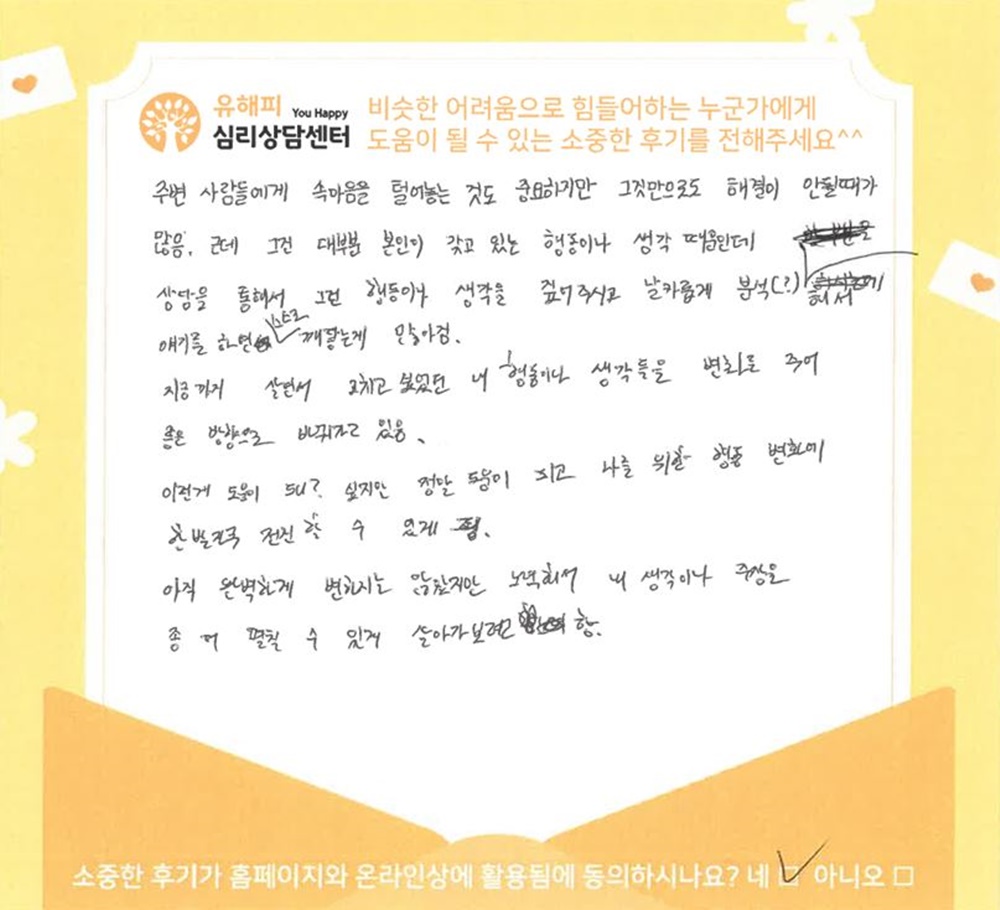 유해피 You Happy
심리상담센터
비슷한 어려움으로 힘들어하는 누군가에게
도움이 될 수 있는 소중한 후기를 전해주세요^^
주변 사람들에게 속마음을 털어놓는 것도 중요하지만 그것만으로도 해결이 안될때가
많음. 근데 그건 대부분 본인이 갖고 있는 행동이나 생각 때문인데
상담을 통해서 그런 행동이나 생각을 짚어주시고 날카롭게 분석(?) 해서
얘기를 하면 스스로 깨닫는게 많아짐.
지금까지 살면서 고치고 싶었던 내 행동이나 생각들을 변화를 주어
좋은 방향으로 바뀌고 있음.
이런게 도움이 되나? 싶지만 정말 도움이 되고 나를 위한 행동 변화에
한발자국 전진할 수 있게 됨.
아직 완벽하게 변하지는 않았지만 노력해서 내 생각이나 주장을
좀 더 펼칠 수 있게 살아가보려고 함.
소중한 후기가 홈페이지와 온라인상에 활용됨에 동의하시나요? 네 아니오